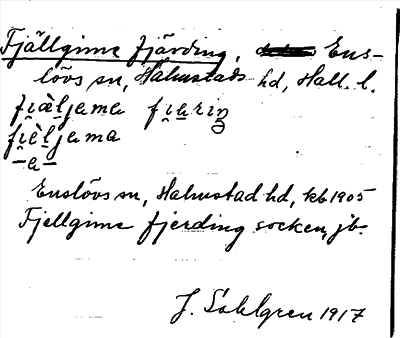 Fjällgime fjärding, Ens-
lövs sn, Halmstads hd, Hall. l.
fi̯àl̯jəmə fi̯æriŋ
fi̯èl̯jəma
-a-
Enslövs sn, Halmstad hd, kb 1905
Fjellgime fjerding socken, jb.
J. Sahlgren 1917